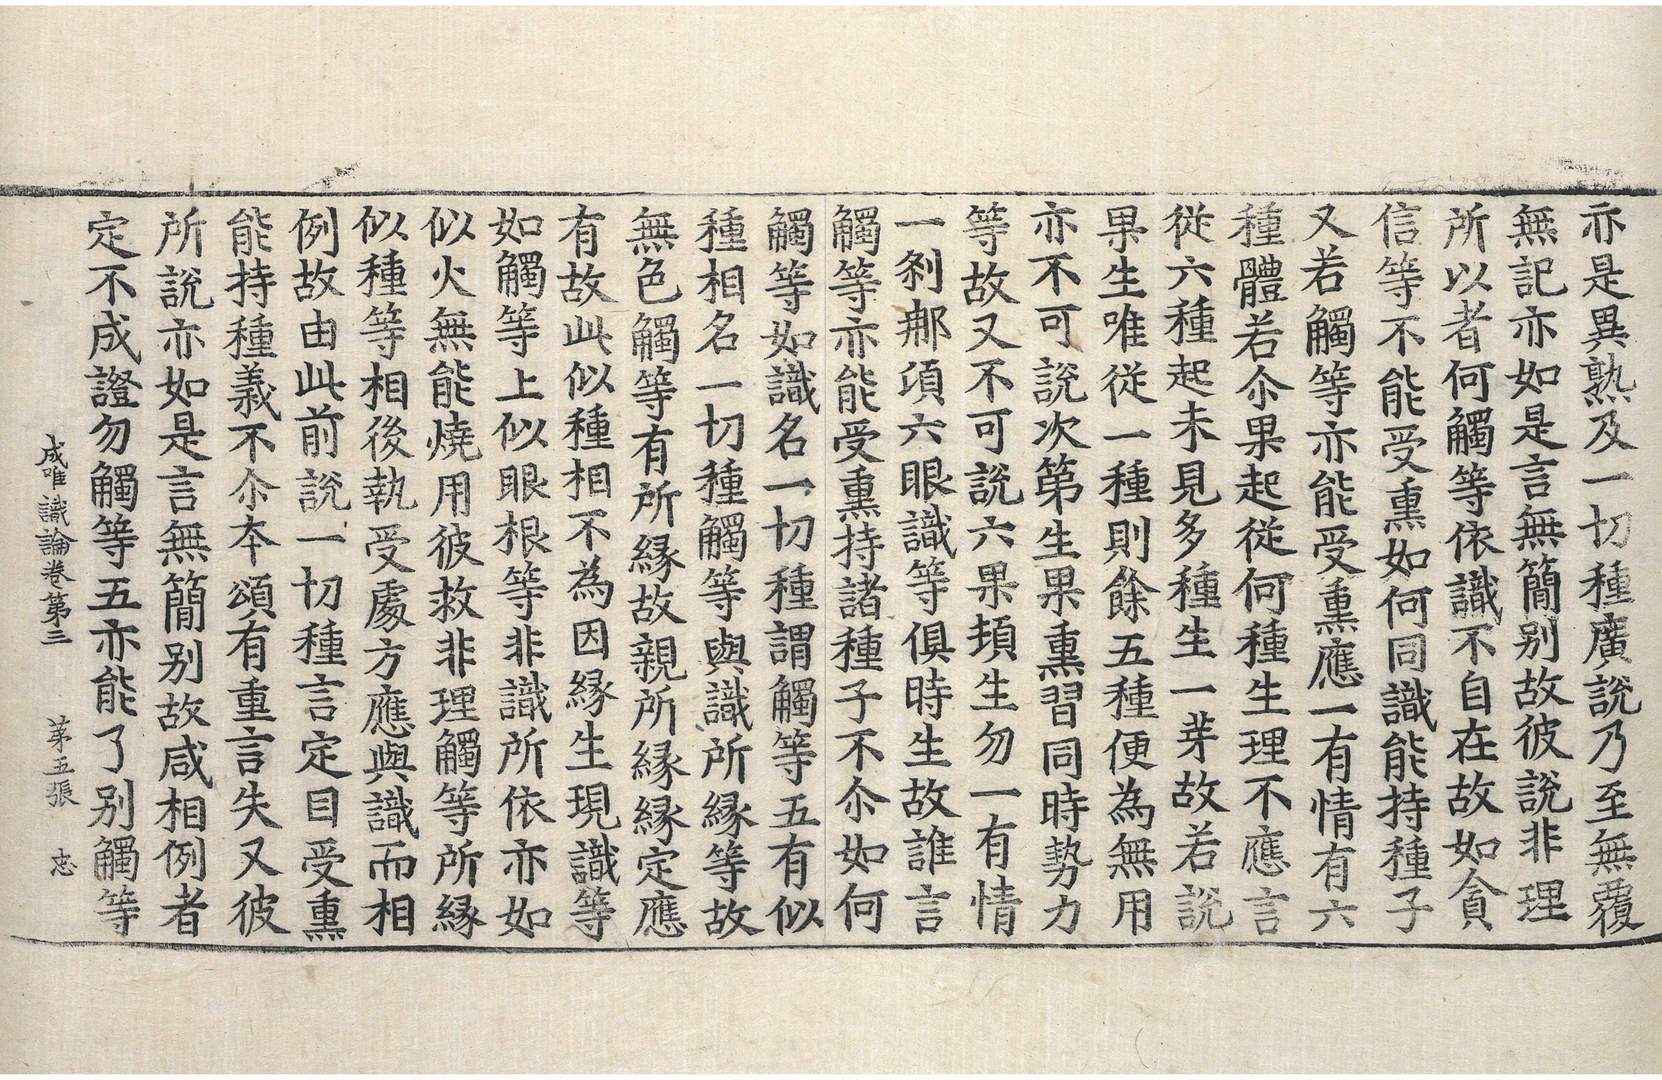 亦是異熟及一切種廣說乃至無覆
無記亦如是言無簡別故彼說非理
所以者何觸等依識不自在故如貪
信等不能受熏如何同識能持種子
又若觸等亦能受熏應一有情有六
種體若尒果起從何種生理不應言
從六種起未見多種生一芽故若說
果生唯從一種則餘五種便為無用
亦不可說次第生果熏習同時勢力
等故又不可說六果頓生勿一有情
一剎那頃六眼識等俱時生故誰言
觸等亦能受熏持諸種子不尒如何
觸等如識名一切種謂觸等五有似
種相名一切種觸等與識所緣等故
無色觸等有所緣故親所緣緣定應
有故此似種相不為因緣生現識等
如觸等上似眼根等非識所依亦如
似火無能燒用彼救非理觸等所緣
似種等相後執受處方應與識而相
例故由此前說一切種言定目受熏
能持種義不尒本頌有重言失又彼
所說亦如是言無簡別故咸相例者
定不成證勿觸等五亦能了別觸等
成唯識論卷第三 第五張 忠